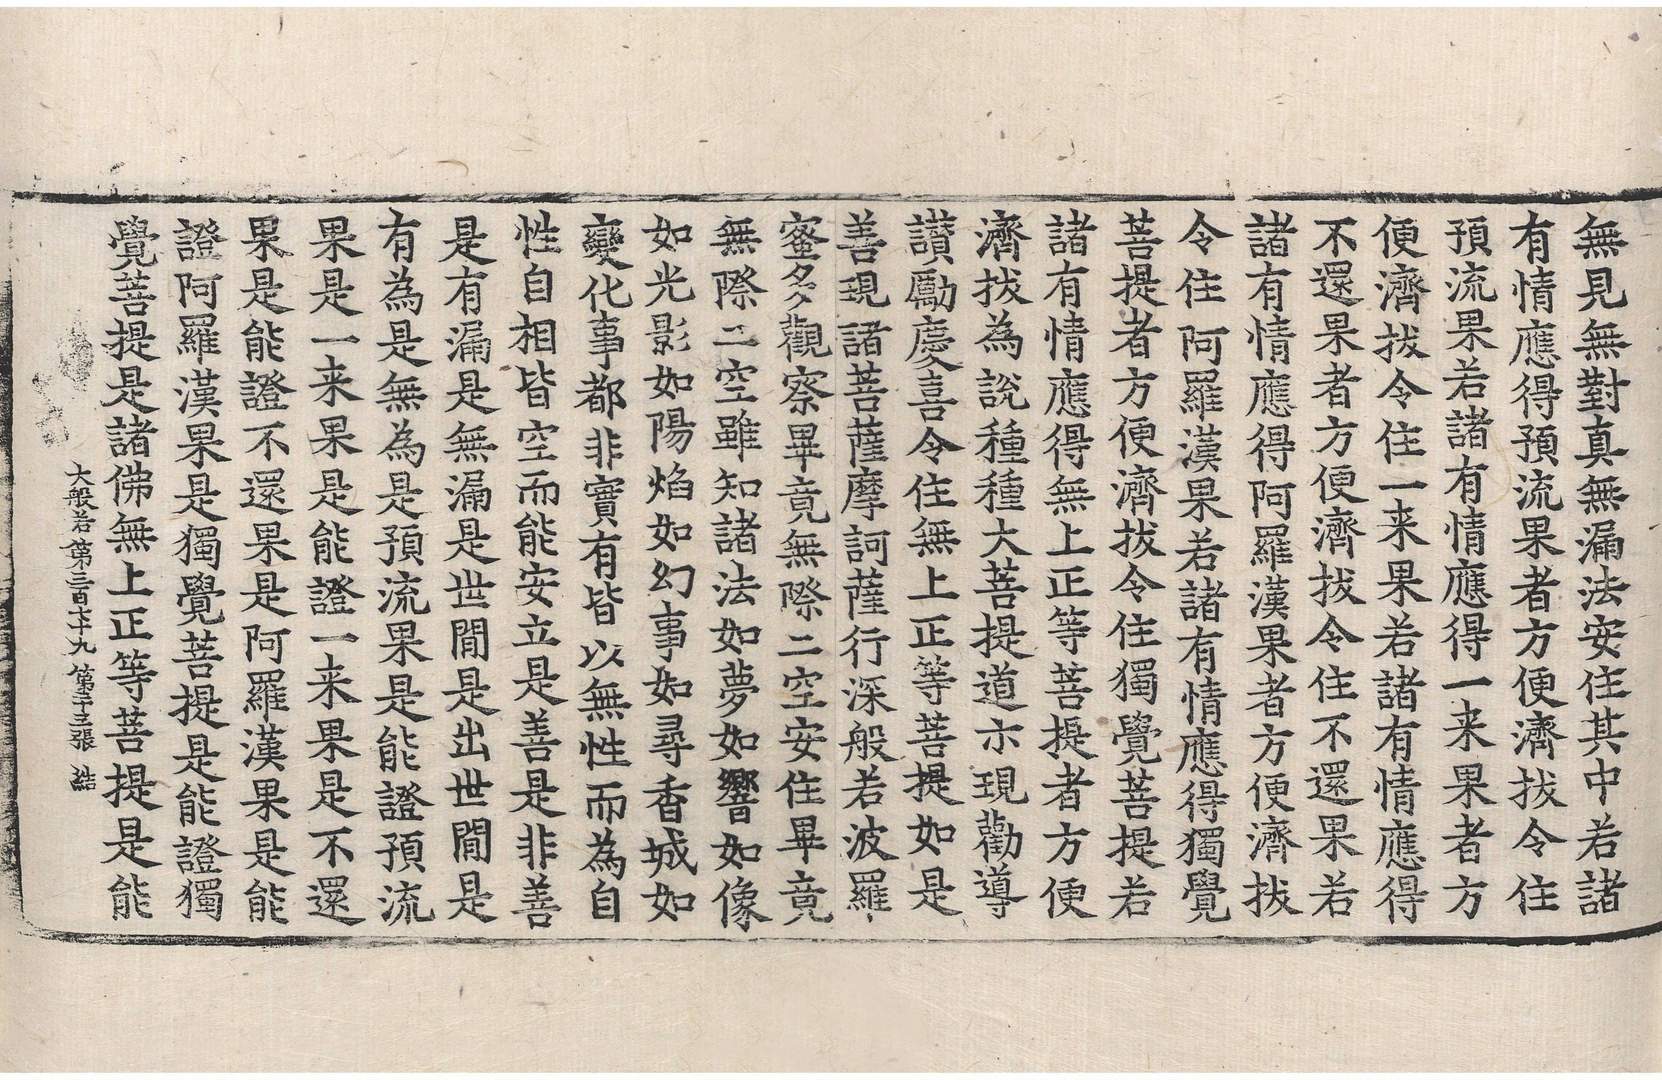 無見無對真無漏法安住其中若諸
有情應得預流果者方便濟拔令住
預流果若諸有情應得一来果者方
便濟拔令住一来果若諸有情應得
不還果者方便濟拔令住不還果若
諸有情應得阿羅漢果者方便濟拔
令住阿羅漢果若諸有情應得獨覺
菩提者方便濟拔令住獨覺菩提若
諸有情應得無上正等菩提者方便
濟拔為說種種大菩提道示現勸導
讃勵慶喜令住無上正等菩提如是
善現諸菩薩摩訶薩行深般若波羅
蜜多觀察畢竟無際二空安住畢竟
無際二空雖知諸法如夢如響如像
如光影如陽焰如幻事如尋香城如
變化事都非實有皆以無性而為自
性自相皆空而能安立是善是非善
是有漏是無漏是世間是出世間是
有為是無為是預流果是能證預流
果是一来果是能證一来果是不還
果是能證不還果是阿羅漢果是能
證阿羅漢果是獨覺菩提是能證獨
覺菩提是諸佛無上正等菩提是能
大般若第三百七十九 第十三張 結